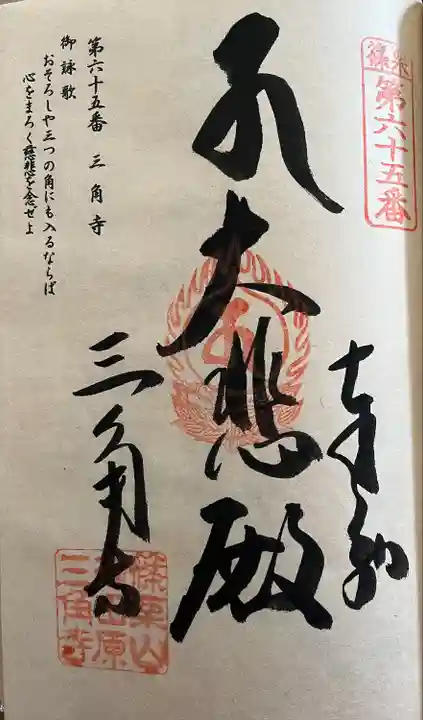 篠栗
第六十五番
奉納
大悲殿
三角寺
第六十五番 三角寺
御詠歌
おそろしや三つの角にも入るならば
心をまろく慈悲を念ぜよ
篠栗山
三角寺